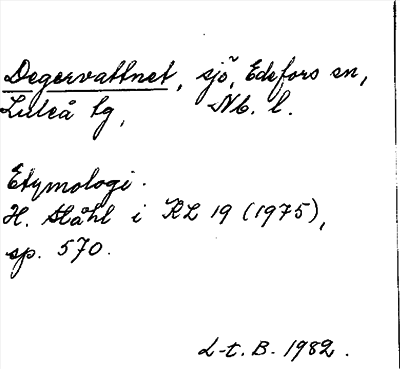 Degervattnet, sjö, Edefors sn,
Luleå tg, Nb. l.
Etymologi.
H. Ståhl i KL 19 (1975),
sp. 570.
L-t. B. 1982.